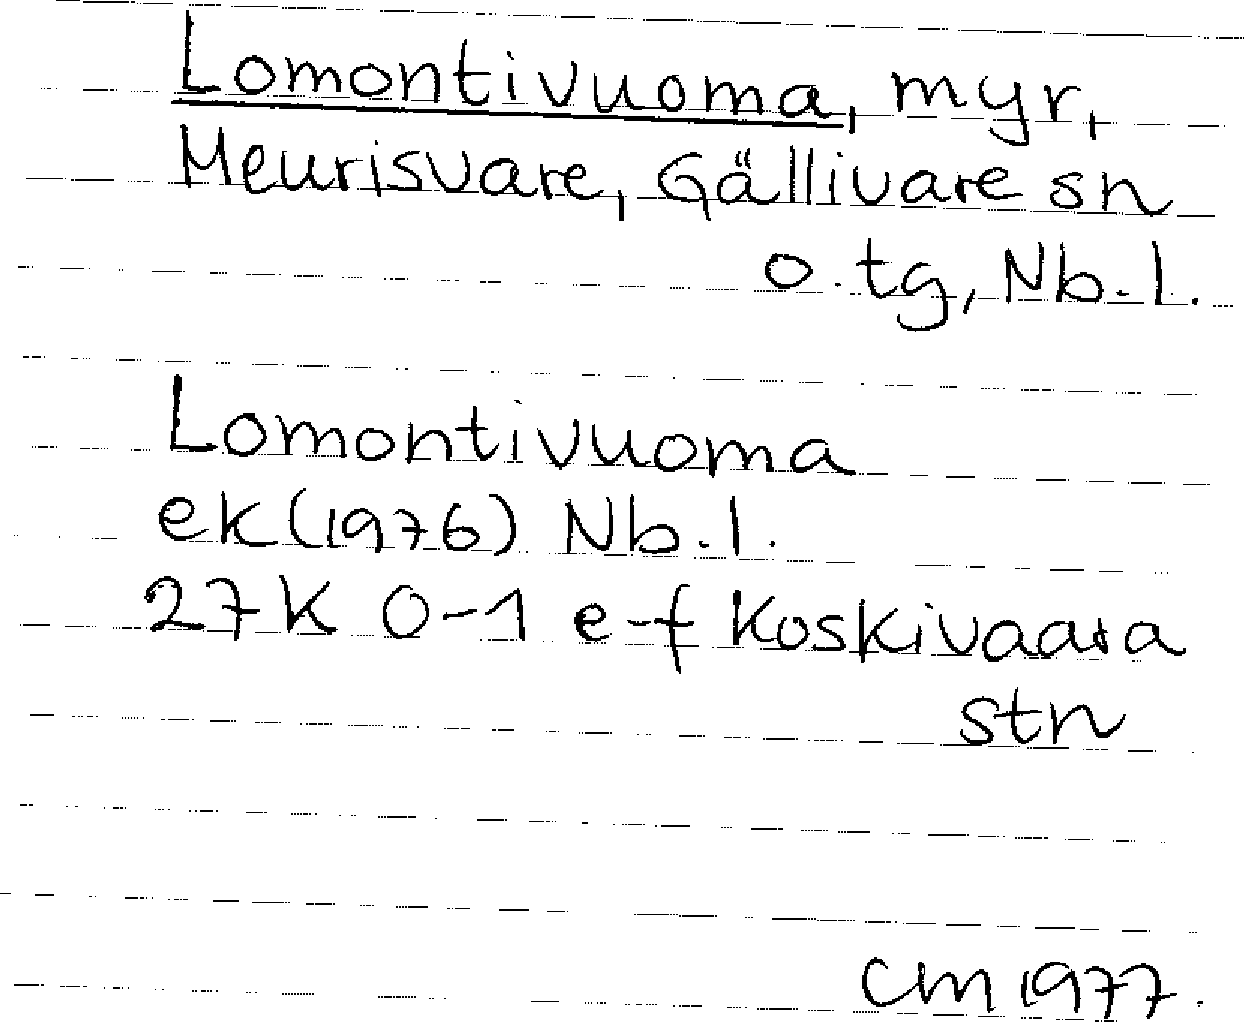 Lomontivuoma, myr,
Meurisvare, Gällivare sn
o. tg, Nb. l.
Lomontivuoma
ek (1976) Nb. l.
27 K 0-1 e-f Koskivaara
stn
CM 1977.